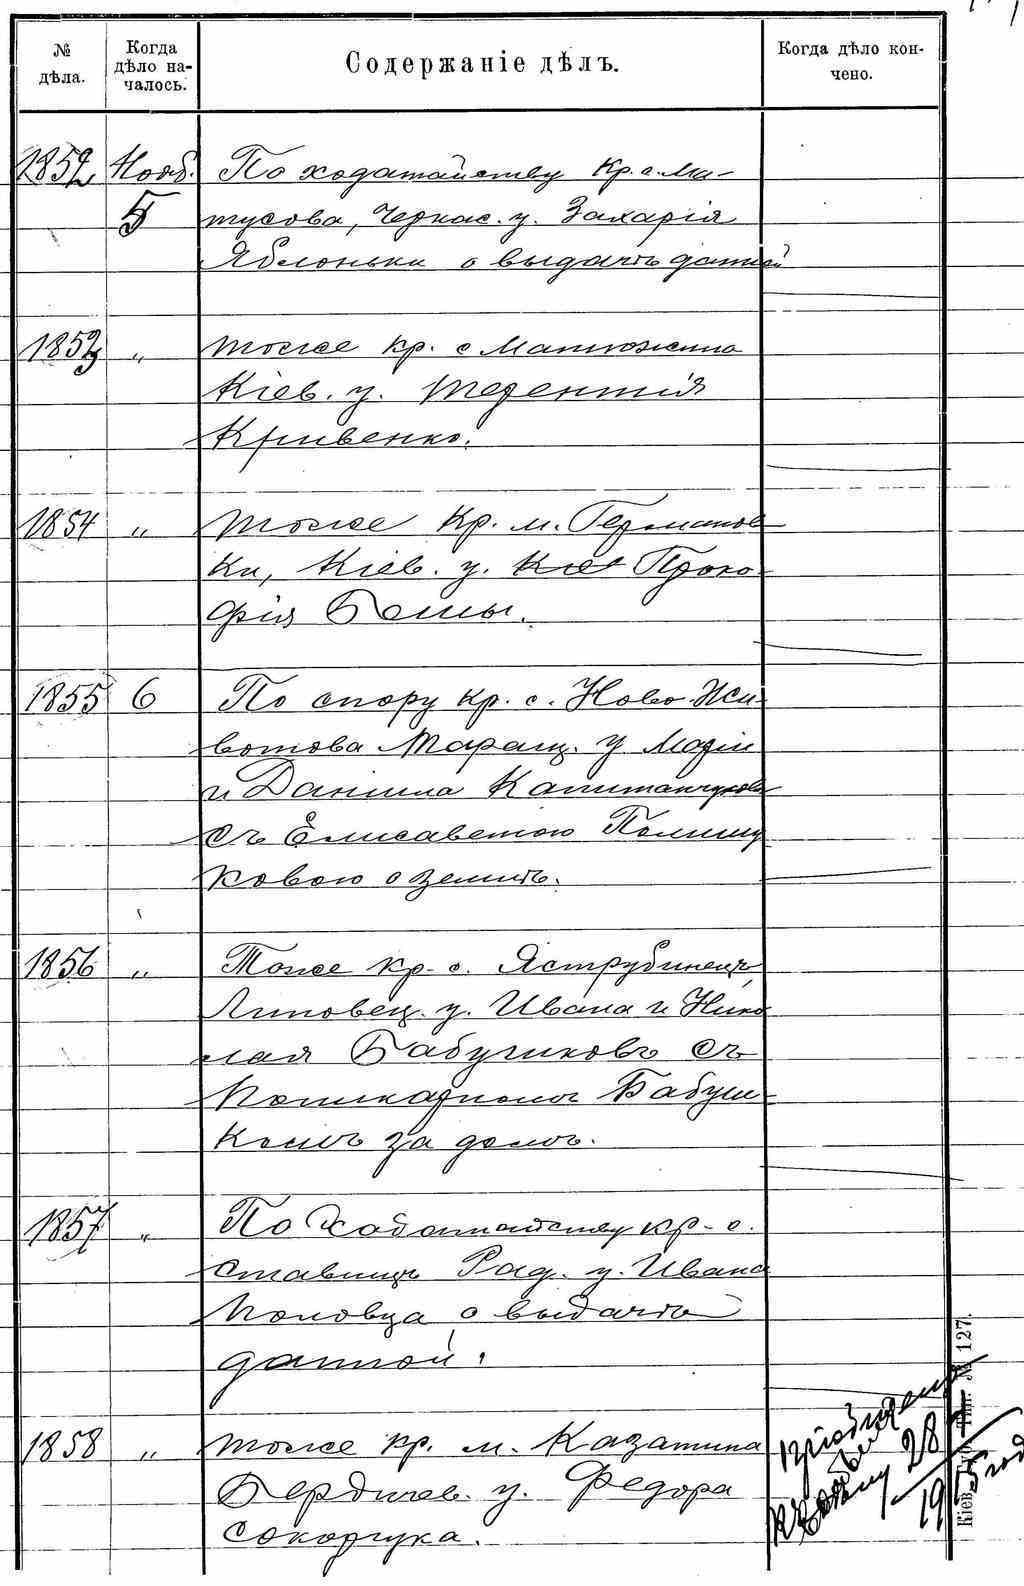 № дѣла.
Когда дѣло на-
чалось.
Содержаніе дѣлъ.
Когда дѣло кон-
чено.
1852 Нояб. По ходатайству кр. с. Ма-
5 тусова, Черкас. у. Захарія
Яблоньки о выдачѣ данной
1853 „ тоже кр. с Матюжина
Кіев. у. Терентія
Кривенко.
1854 „ тоже кр. м. Германов
ки, Кіев. у. Кіе Проко-
фія Бешы.
1855 6 По спору кр. с. Ново-Жи-
вотова Таращ. у Маріи
и Даниила Капитанчуковъ
съ Елисаветою Полищу
ковою о землѣ.
1856 „ Тоже кр-с. Яструбинецъ
Липовец. у. Ивана и Нико
лая Бабушковъ съ
Поликарпомъ Бабуш-
комъ за домъ.
1857 „ По ходатайству кр-с.
Ставищъ Рад. у. Ивана
Половца о выдачѣ
данной.
1858 „ тоже кр. м. Казатина
Бердичев. у. Федора
Сокорчука.
28
1915 год
Кіев. Губ. Тип. № 127.